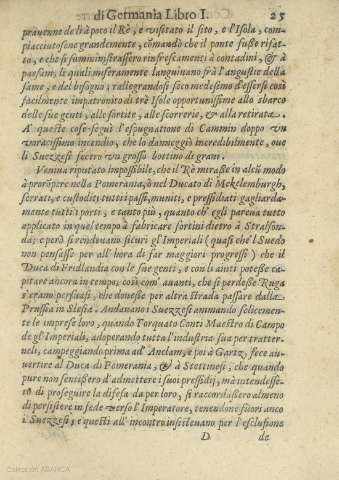 di Germania Libro I. 25
prauenne de lì à poco il Rè, e visitato il sito, e l'Isola, com-
piacciutosene grandemente, comandò che il ponte fusse rifat-
to, e che si somministrassero rinfrescamenti à contadini, & à
paesani, li quali miseramente languiuano frà l'angustie della
fame, e del bisogno; rallegrandosi seco medesimo d'essersi così
facilmente impatronito di trè Isole opportunissime allo sbarco
delle sue genti, alle sortite, alle scorrerie, & alla retirata.
A queste cose seguì l'espugnatione di Cammin doppo vn
voracissimo incendio, che lo dameggiò incredibilmente, oue
li Suezzesi fecero vn grosso bottino di grani.
Veniua riputato impossibile, che il Rè mirasse in alcū modo
à prorōpere nella Pomerania, ò nel Ducato di Mekelemburgh,
serrati, e custoditi tutti i passi, muniti, e pressidiati gagliarda-
mente tutti i porti, e tanto più, quanto ch'egli pareua tutto
applicato in quel tempo à fabricare fortini dietro à Stralson-
da; e però si rendeuano sicuri gl'Imperiali (quasi che'l Suedo
non pensasse per all'hora di far maggiori progressi) che il
Duca di Fridlandia con le sue genti, e con li aiuti potesse ca-
pitare ancora in tempo, così com'auanti, che si perdesse Ruga
s'erano persuasi, che douesse per altra strada passare dalla
Prussia in Slesia. Andauano i Suezzesi annando solicemen-
te le imprese loro, quando Torquato Conti Maestro di Campo
de gl'Imperiali, adoperando tutta l'industria sua per tratter-
nerli, campeggiando prima ad Anclam, e poi à Gartz, fece au-
uertire al Duca di Pomerania, & à Stettinesi, che quando
pure non sentissero d'admettere i suoi pressidij, mà intendesse-
ro di proseguire la difesa da per loro, si raccordassero almeno
di persistere in fede verso l'Imperatore, tenendone fuori anco
i Suezzesi; e questi all'incontro insisteuano per l'esclusione
D de
Colección ABANCA